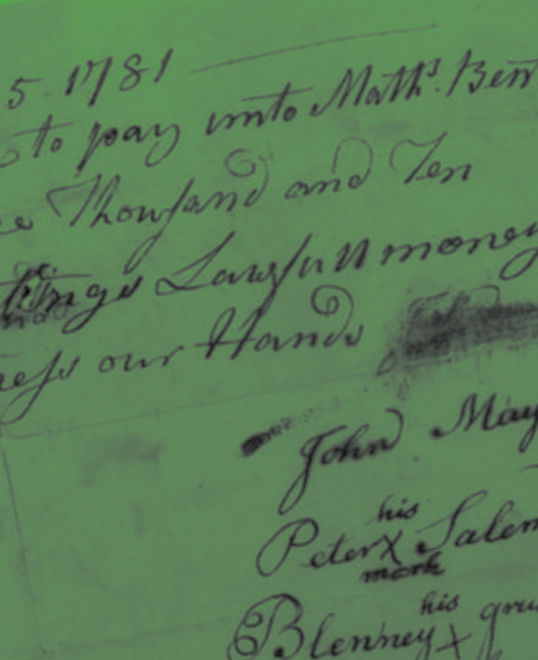 5 1781
to pay unto Math.s Ben
Thousand and Ten
Lawfull money
ness our Hands
John May
his
Peter X Salem
mark
his
Blenney X